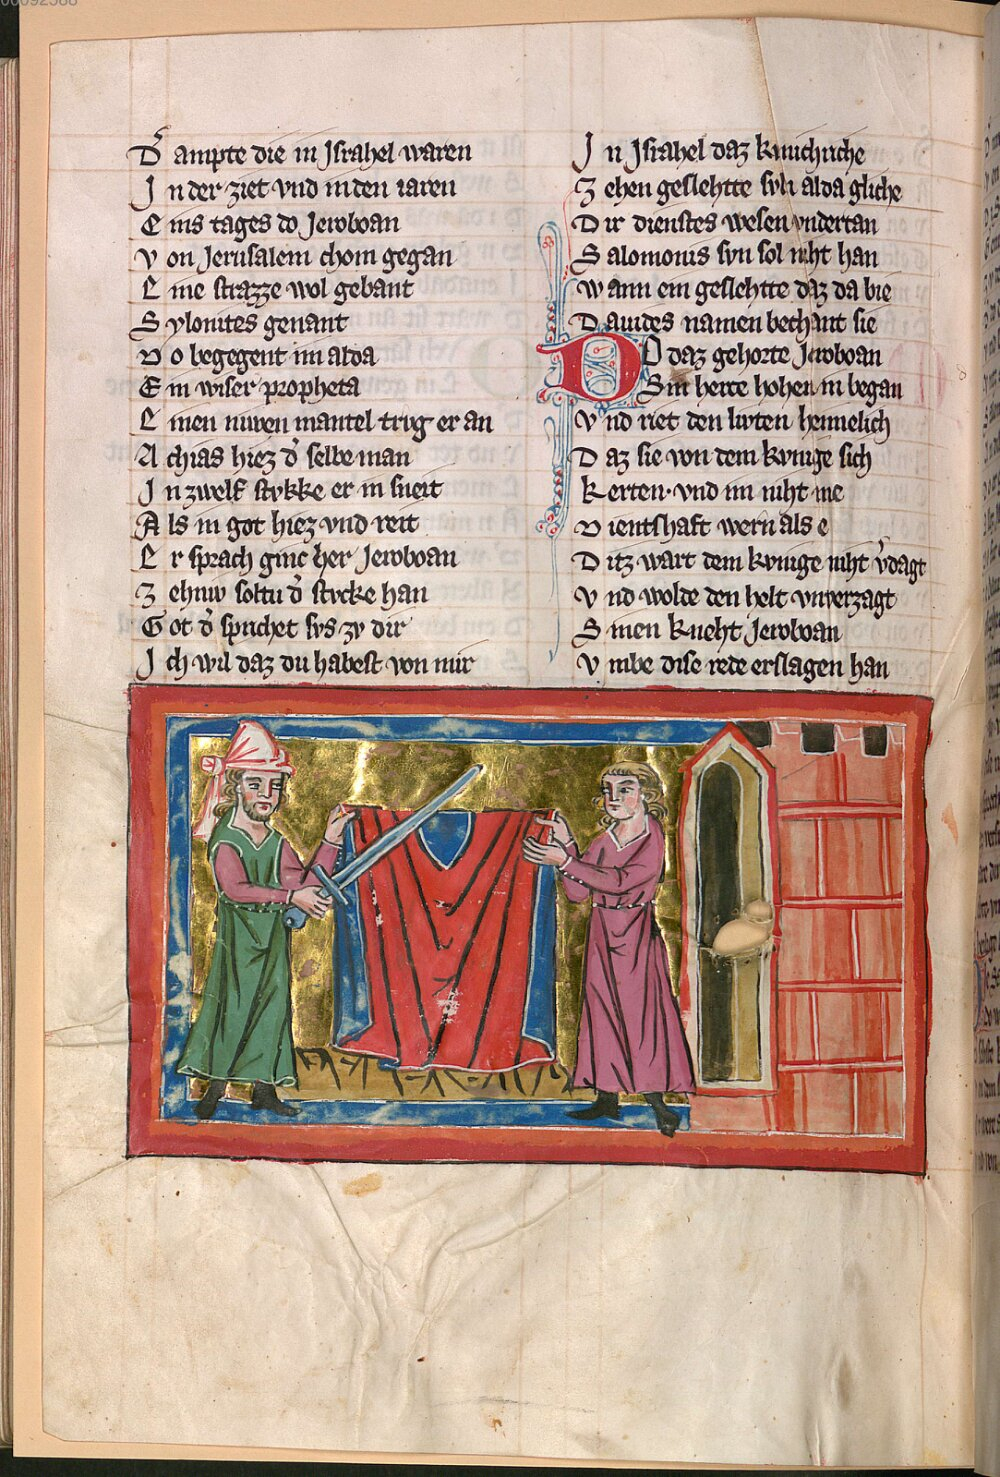 00092588
D᾽ ampte die in Jsrahel waren
J n der ziet vnd in den iaren
E ins tages do Jeroboan
V on Jerusalem chom gegan
E ine strazze wol gebant
S ylonites genant
D o begegent im alda
E in wiser propheta
E inen niwen mantel trvg er an
A chias hiez d᾽ selbe man
J n zwelf stvkke er in sneit
A ls in got hiez vnd reit
E r sprach ginc her Jeroboan
Z ehniv soltu d᾽ stvcke han
G ot d᾽ sprichet svs zv dir
J ch wil daz du habest von mir
J n Jsrahel daz kunichriche
Z ehen geslehtte svln alda gliche
D ir dienstes wesen vndertan
S alomonis svn sol niht han
W ann ein geslehtte daz da bie
D auides namen bechant sie
D O daz gehorte Jeroboan
Sin herre hohen in began
V nd riet den livten heimelich
D az sie von dem kvnige sich
K erten · vnd im niht me
D ientshaft wern als e
D itz wart dem kvnige niht v᾽dagt
V nd wolde den helt vnverzagt
S inen kneht Jeroboan
V mbe dise rede erslagen han